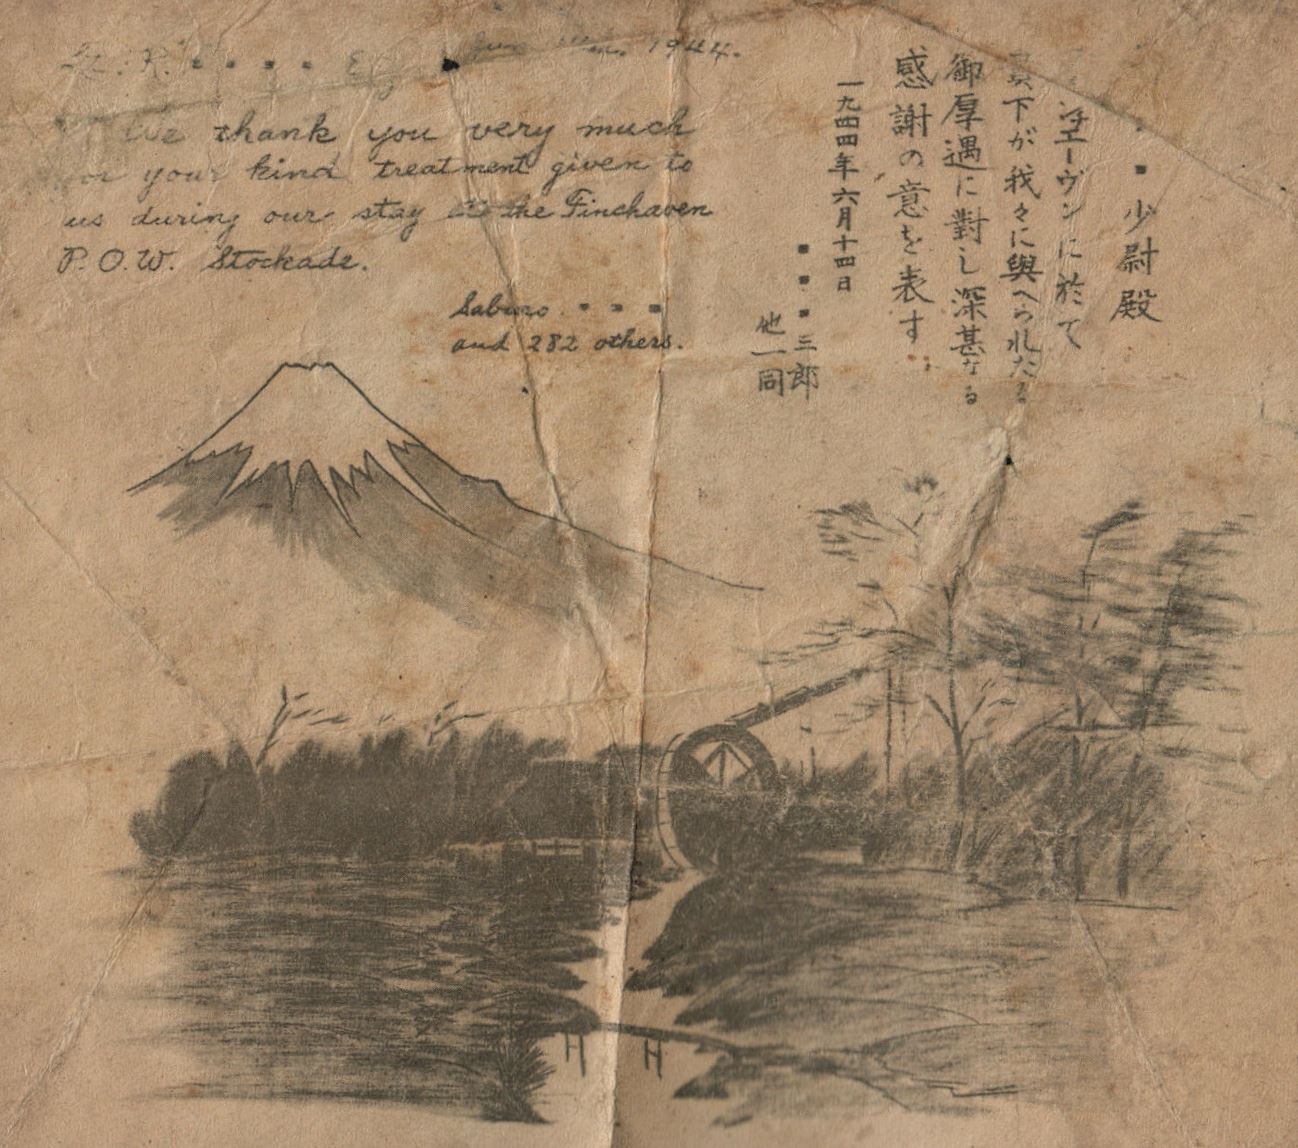 June 14th 1944.
We thank you very much
for your kind treatment given to
us during our stay at the Finchaven
P.O.W. Stockade.
Saburo
and 282 others.
少尉殿
ェーヴンに於て
下が我々に與へられたる
御厚遇に對し深甚なる
感謝の意を表す
一九四四年六月十四日
三郎
他一同